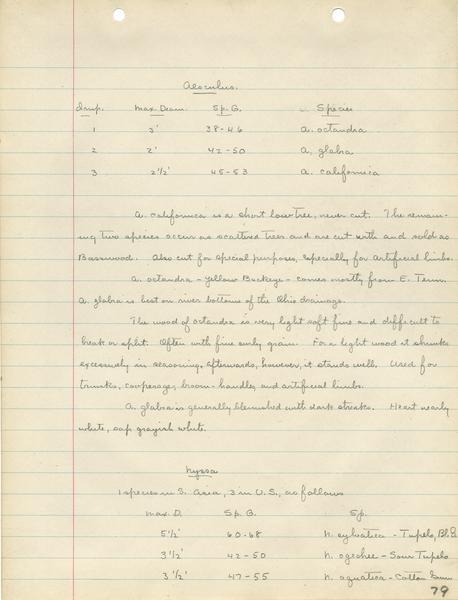 Aesculus.
Imp. Max. Deam. Sp. G. Species
1 3' 38-46 A. octandra
2 2' 42-50 A. glabra
3 2½' 45-53 A. californica
A. californica is a short low tree, never cut. The remain-
ing two species occur as scattered trees and are cut with and sold as
Basswood. Also cut for special purposes, especially for artificial limbs.
A. octandra - yellow Buckeye - comes mostly from E. Tenn.
A. glabra is best on river bottoms of the Ohio drainage.
The wood of octandra is very light soft fine and difficult to
break or split. Often with fine curly grain. For a light wood it shrinks
excessively in seasoning, afterwards, however, it stands well. Used for
trunks, cooperage, broom-handles, and artificial limbs.
A. glabra is generally blemished with dark streaks. Heart nearly
white, sap grayish white.
Nyssa
1 species in S. Asia, 3 in U.S., as follows
Max. D. Sp. G. Sp.
5½' 60-68 N. sylvatica - Tupelo, Bl. G
3½' 42-50 N. ogeche - Sour Tupelo
3½' 47-55 N. aquatica - Cotton Gum
79